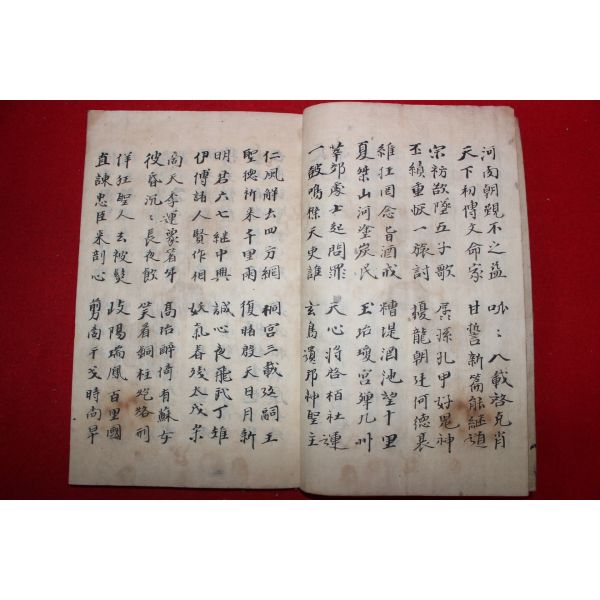 河南朝覲不之益 〻八載啓克肖
天下初傳文命家 甘誓新篇能繼迪
宗祊故墜五子歌 孱孫孔甲好鬼神
丕績重恢一旅討 擾龍朝廷何德衰
維狂罔念旨酒戒 糟堤酒池望十里
夏桀山河塗炭民 玉坮瓊宮殫九州
莘郊處士起問罪 天心將啓柏社運
一皷鳴條天吏誰 玄鳥遺邦神聖主
仁風解去四方網 桐宮三載廷嗣王
聖德祈來千里雨 復睹殷天日月新
明君六七繼中興 誠心夜飛武丁雉
伊傅諸人賢作相 妖氣春殘太戊桒
商天季運蒙 高坮醉倚有蘇女
彼昏沉〻長夜飮 笑看銅柱炮烙刑
佯狂聖人去被髮 岐陽瑞鳳百里國
直諫忠臣來剖心 剪商干戈時尚早